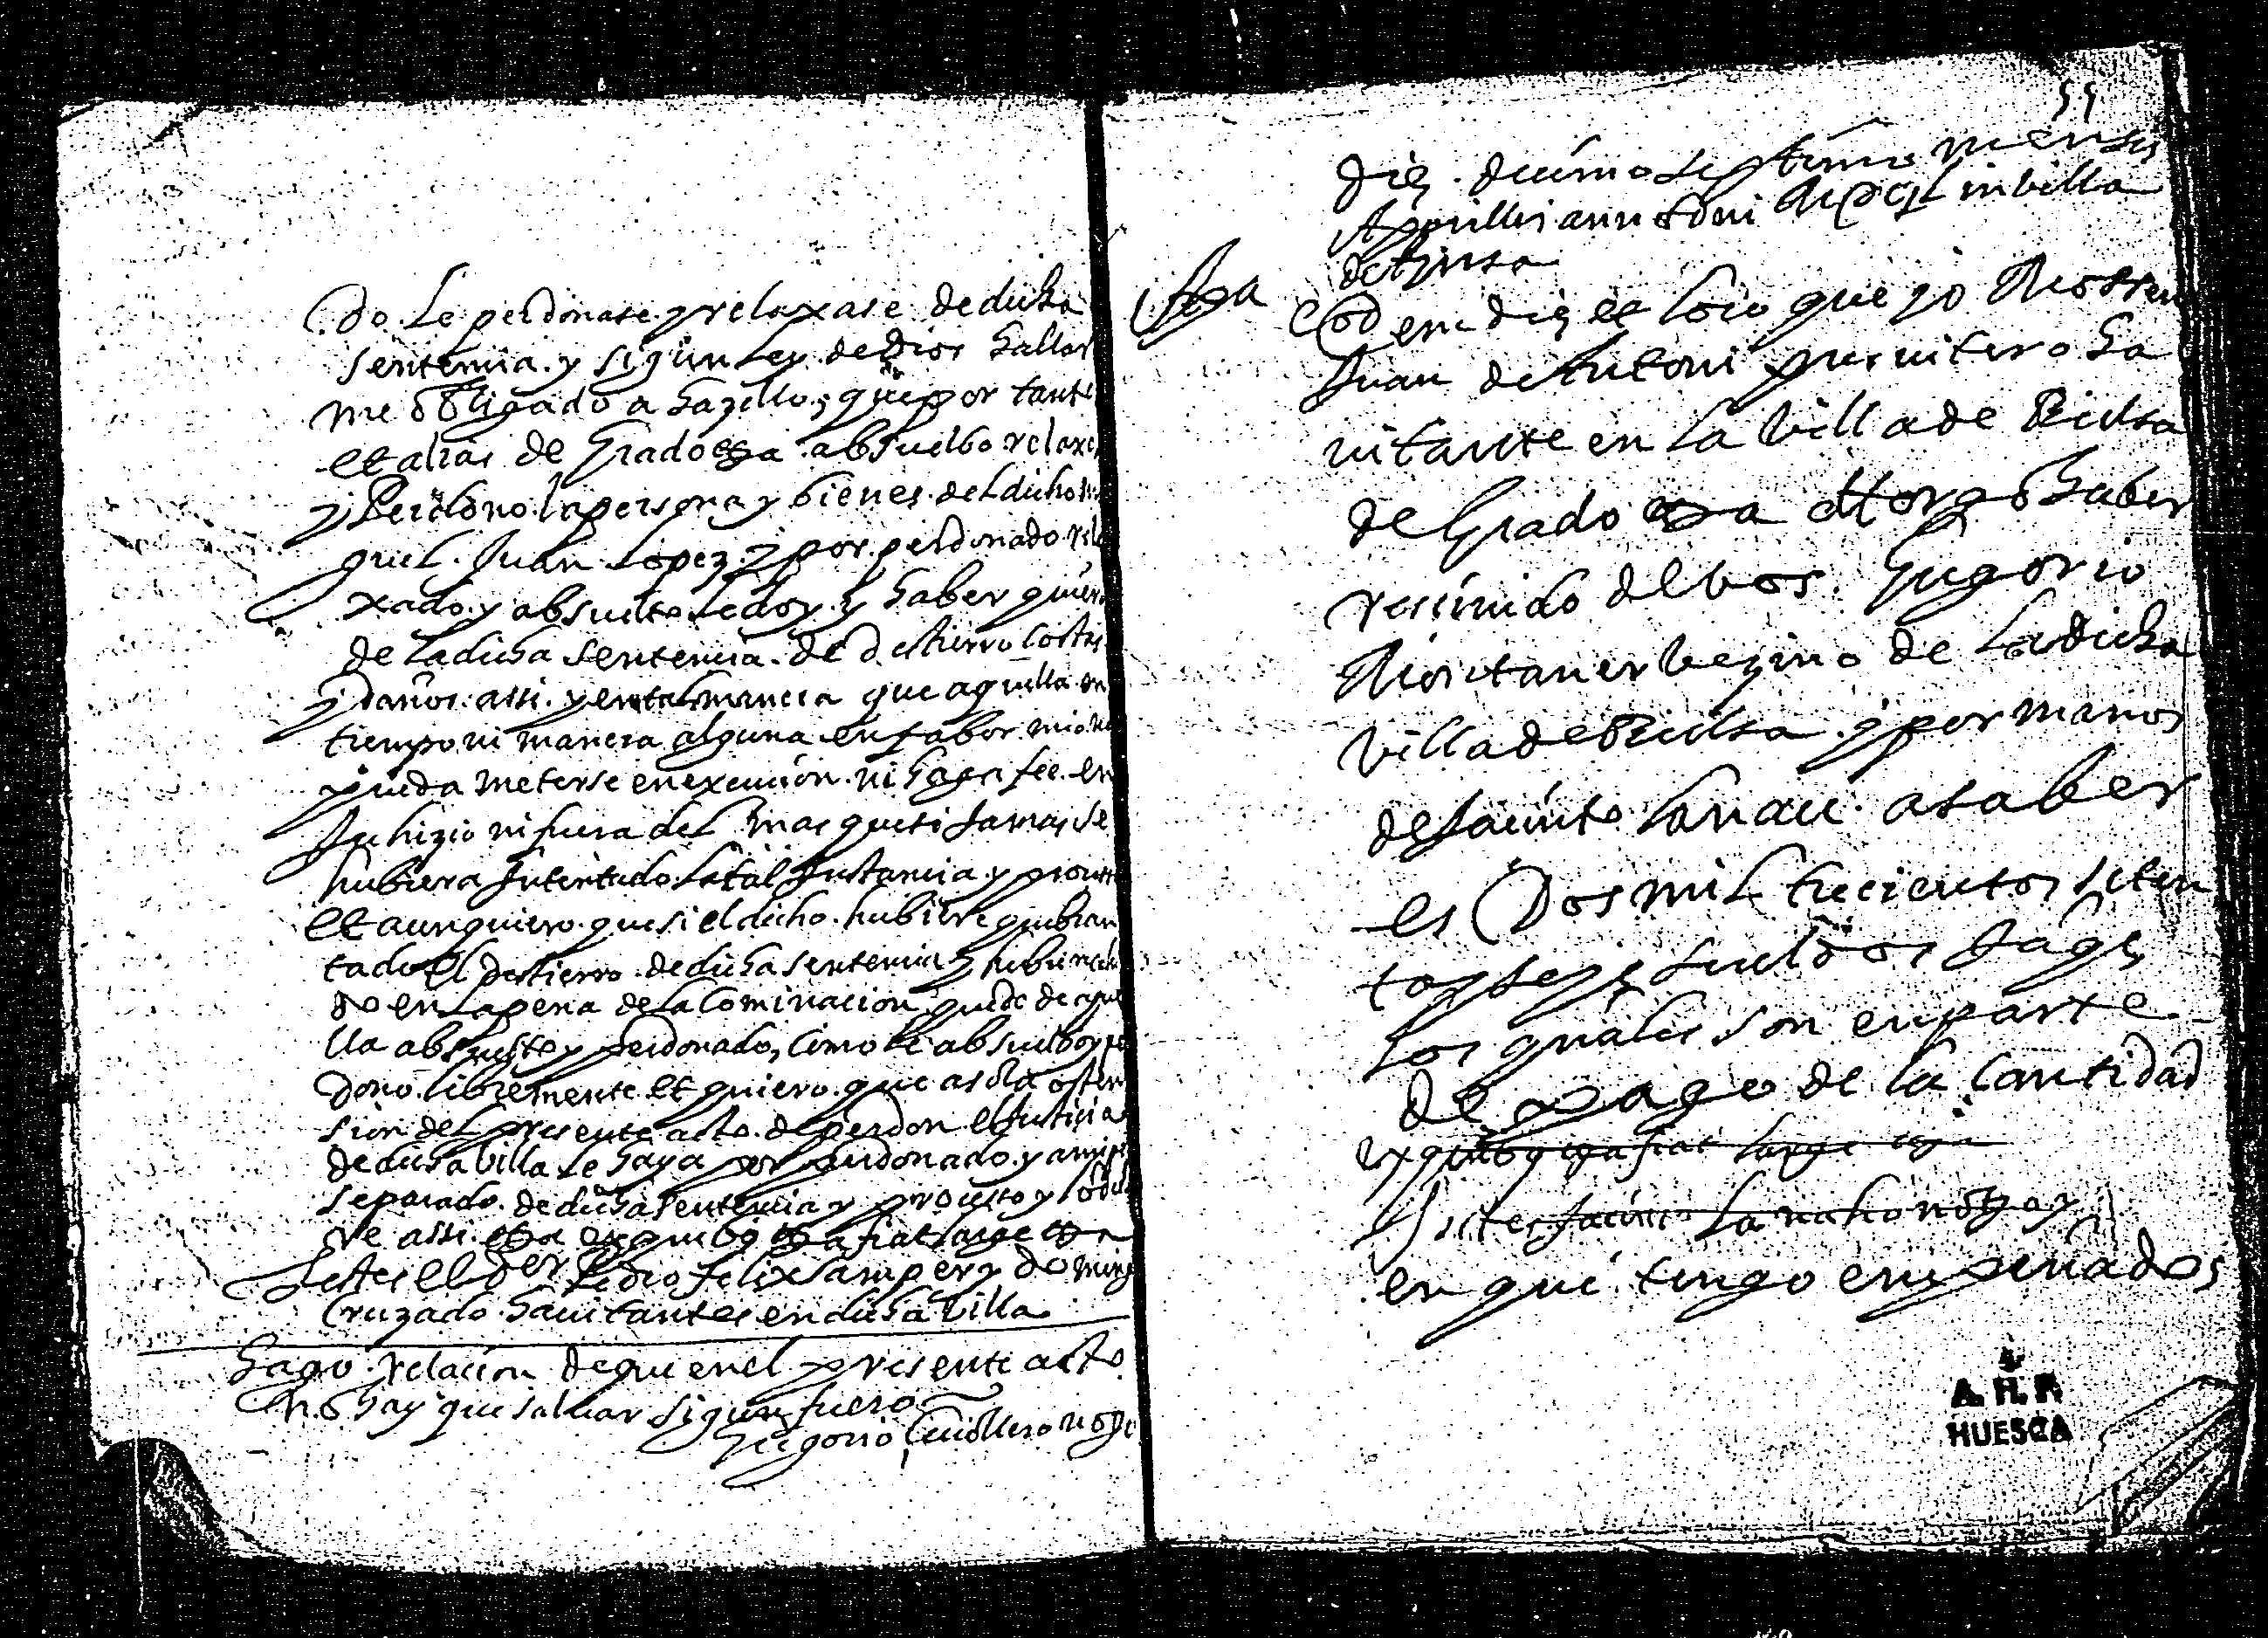 do le perdonase y relaxase de dicha
sentencia y sigun ley de Dios hallar
me obligado a hazello, que por tanto
et alias de Grado etca absuelbo relaxo
y Perdono la persona y bienes del dicho Mi
guel Juan Lopez y por perdonado rela
xado y absuelto le doy y haber quiero
de la dicha sentencia de destierro costas
y daños assi y en tal manera que aquella en
tiempo ni manera alguna en fabor mio no
pueda meterse en execucion ni haga fee en
Juhizio ni fuera del mas que si Jamas se
hubiera Intentado la tal Instancia y processo
et aun quiero que si el dicho hubiere quebran
tado el destierro de dicha sentencia y hubiere
do en la pena de la Cominacion quede de aque
lla absuelto y perdonado, como le absuelbo y per
dono libremente et quiero que a sola osten
sion del presente acto de perdon el Justicia
de dicha villa le haya por perdonado y a mi
separado de dicha sentencia y processo y
re assi etca ex quibus etca fiat large etca
Testes el Pedro Felix Samper y Doming
Cruzado havitantes en dicha Villa
Hago relacion de que en el presente acto
no hay que salvar sigun fuero
Gregorio Notº
55
Die decimo septimo mensis
Aprillis anno Dni MDC in villa
de Ainsa
Apca Eodem die et loco que yo Mossen
Juan de Antoni presvitero ha
vitante en la villa de Bielsa
de Grado etca attorgo haber
recivido de bos Gregorio
Montaner bezino de la dicha
villa de Bielsa y por manos
de Jacinto Lanau a saber
es Dos mil trecientos seten
ta y seys sueldos Jaqs
los quales son en parte
de pago de la Cantidad
ex quibus etca fiat large etca
Testes Jacinto
en que tengo empeñados
A. H. P.
HUESCA